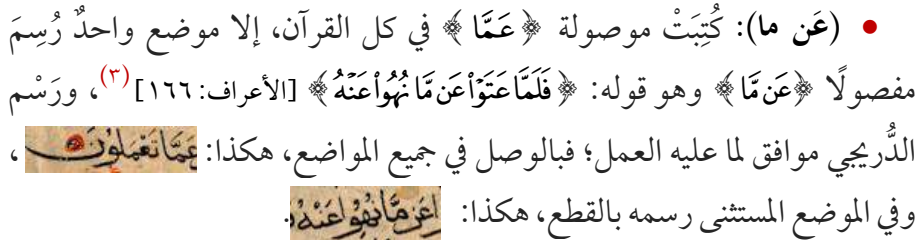 • (عَن ما): كُتِبَتْ موصولة ﴿عَمَّا﴾ في كل القرآن، إلا موضع واحدٌ رُسِمَ
مفصولًا ﴿عَن مَّا﴾ وهو قوله: ﴿فَلَمَّا عَتَوْاْ عَن مَّا نُهُواْ عَنْهُ﴾ [الأعراف: ١٦٦] (٣)، ورَسْم
الدُّريجي موافق لما عليه العمل؛ فبالوصل في جميع المواضع، هكذا: عَمَّا تَعْمَلُونَ ،
وفي الموضع المستثنى رسمه بالقطع، هكذا: عَن مَّا نُهُواْ عَنْهُ.